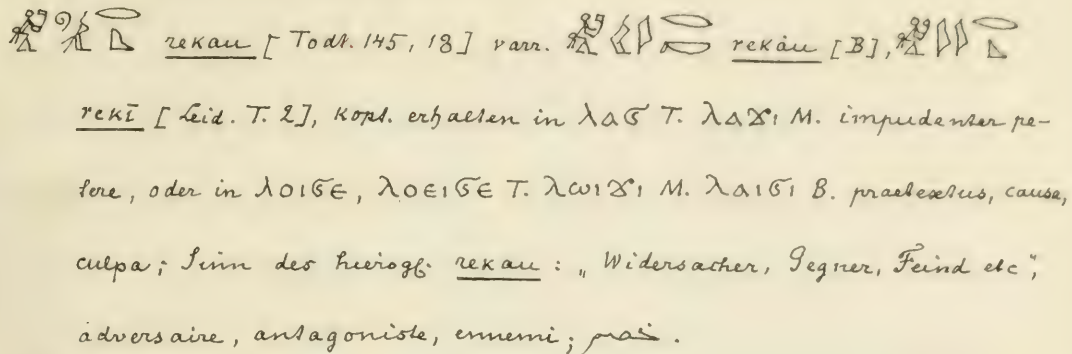 rekau [Todt. 145, 18] varr. rekȧu [B],
rekī [Leid. T. 2], kopt. erhalten in ⲗⲁϭ T. ⲗⲁϫⲓ M. impudenter pe-
tere, oder in ⲗⲟⲓϭⲉ, ⲗⲟⲉⲓϭⲉ T. ⲗⲱⲓϫⲓ M. ⲗⲁⲓϭⲓ B. praetextus, causa,
culpa; Sinn des hierogl. rekau: „Widersacher, Gegner, Feind etc",
adversaire, antagoniste, ennemi;